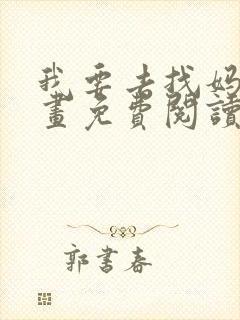 我要去找妈
畫免費閱讀
郭書春